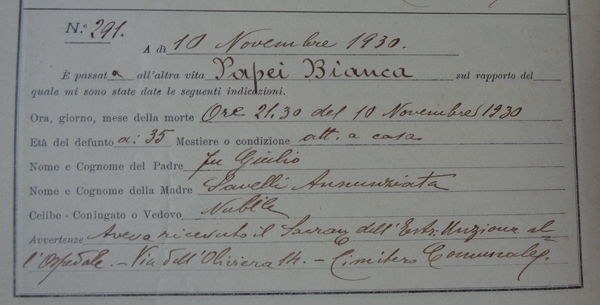 N.° 291.
A dì 10 Novembre 1930.
È passata all'altra vita Papei Bianca sul rapporto del
quale mi sono state date le seguenti indicazioni.
Ora, giorno, mese della morte Ore 21.30 del 10 Novembre 1930
Età del defunto a: 35 Mestiere o condizione att. a casa
Nome e Cognome del Padre fu Giulio
Nome e Cognome della Madre Savelli Annunziata
Celibe - Coniugato o Vedovo Nubile
Avvertenze Aveva ricevuto il Sacram dell'Estr. Unzione al
l'Ospedale. - Via dell'Oliviera 14. - Cimitero Comunale.